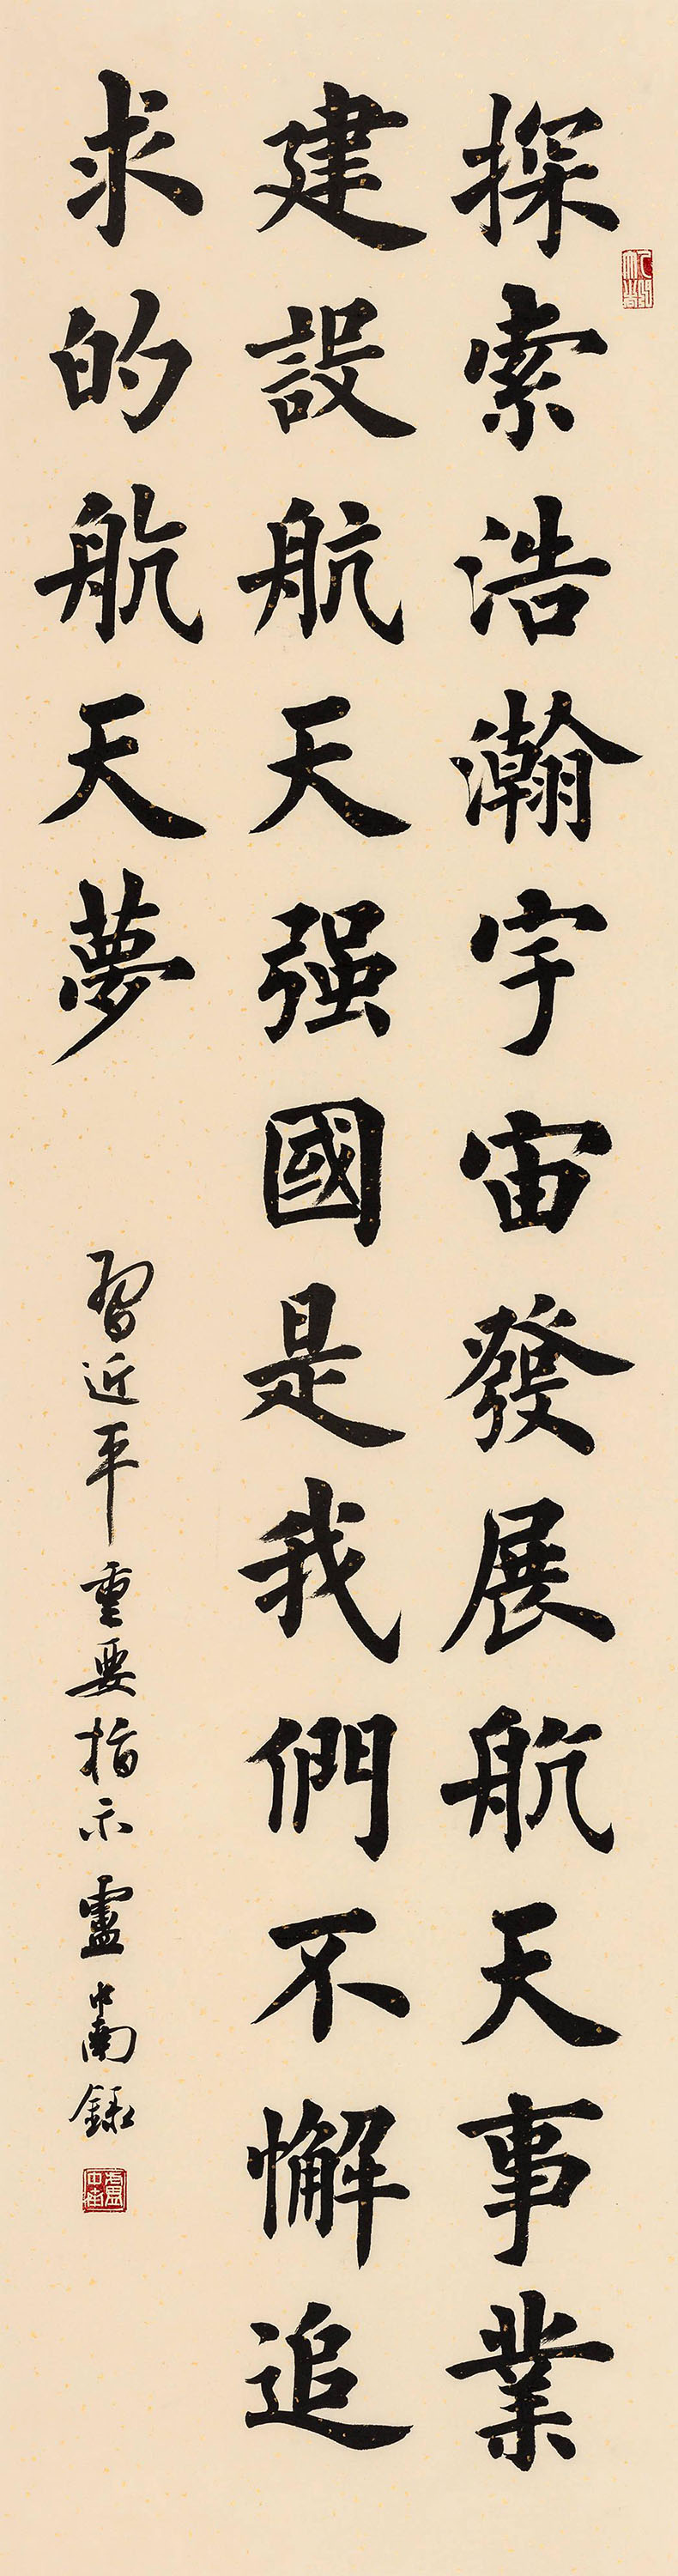 探索浩瀚宇宙發展航天事業
建設航天强國是我們不懈追
求的航天夢
習近平重要指示盧中南錄